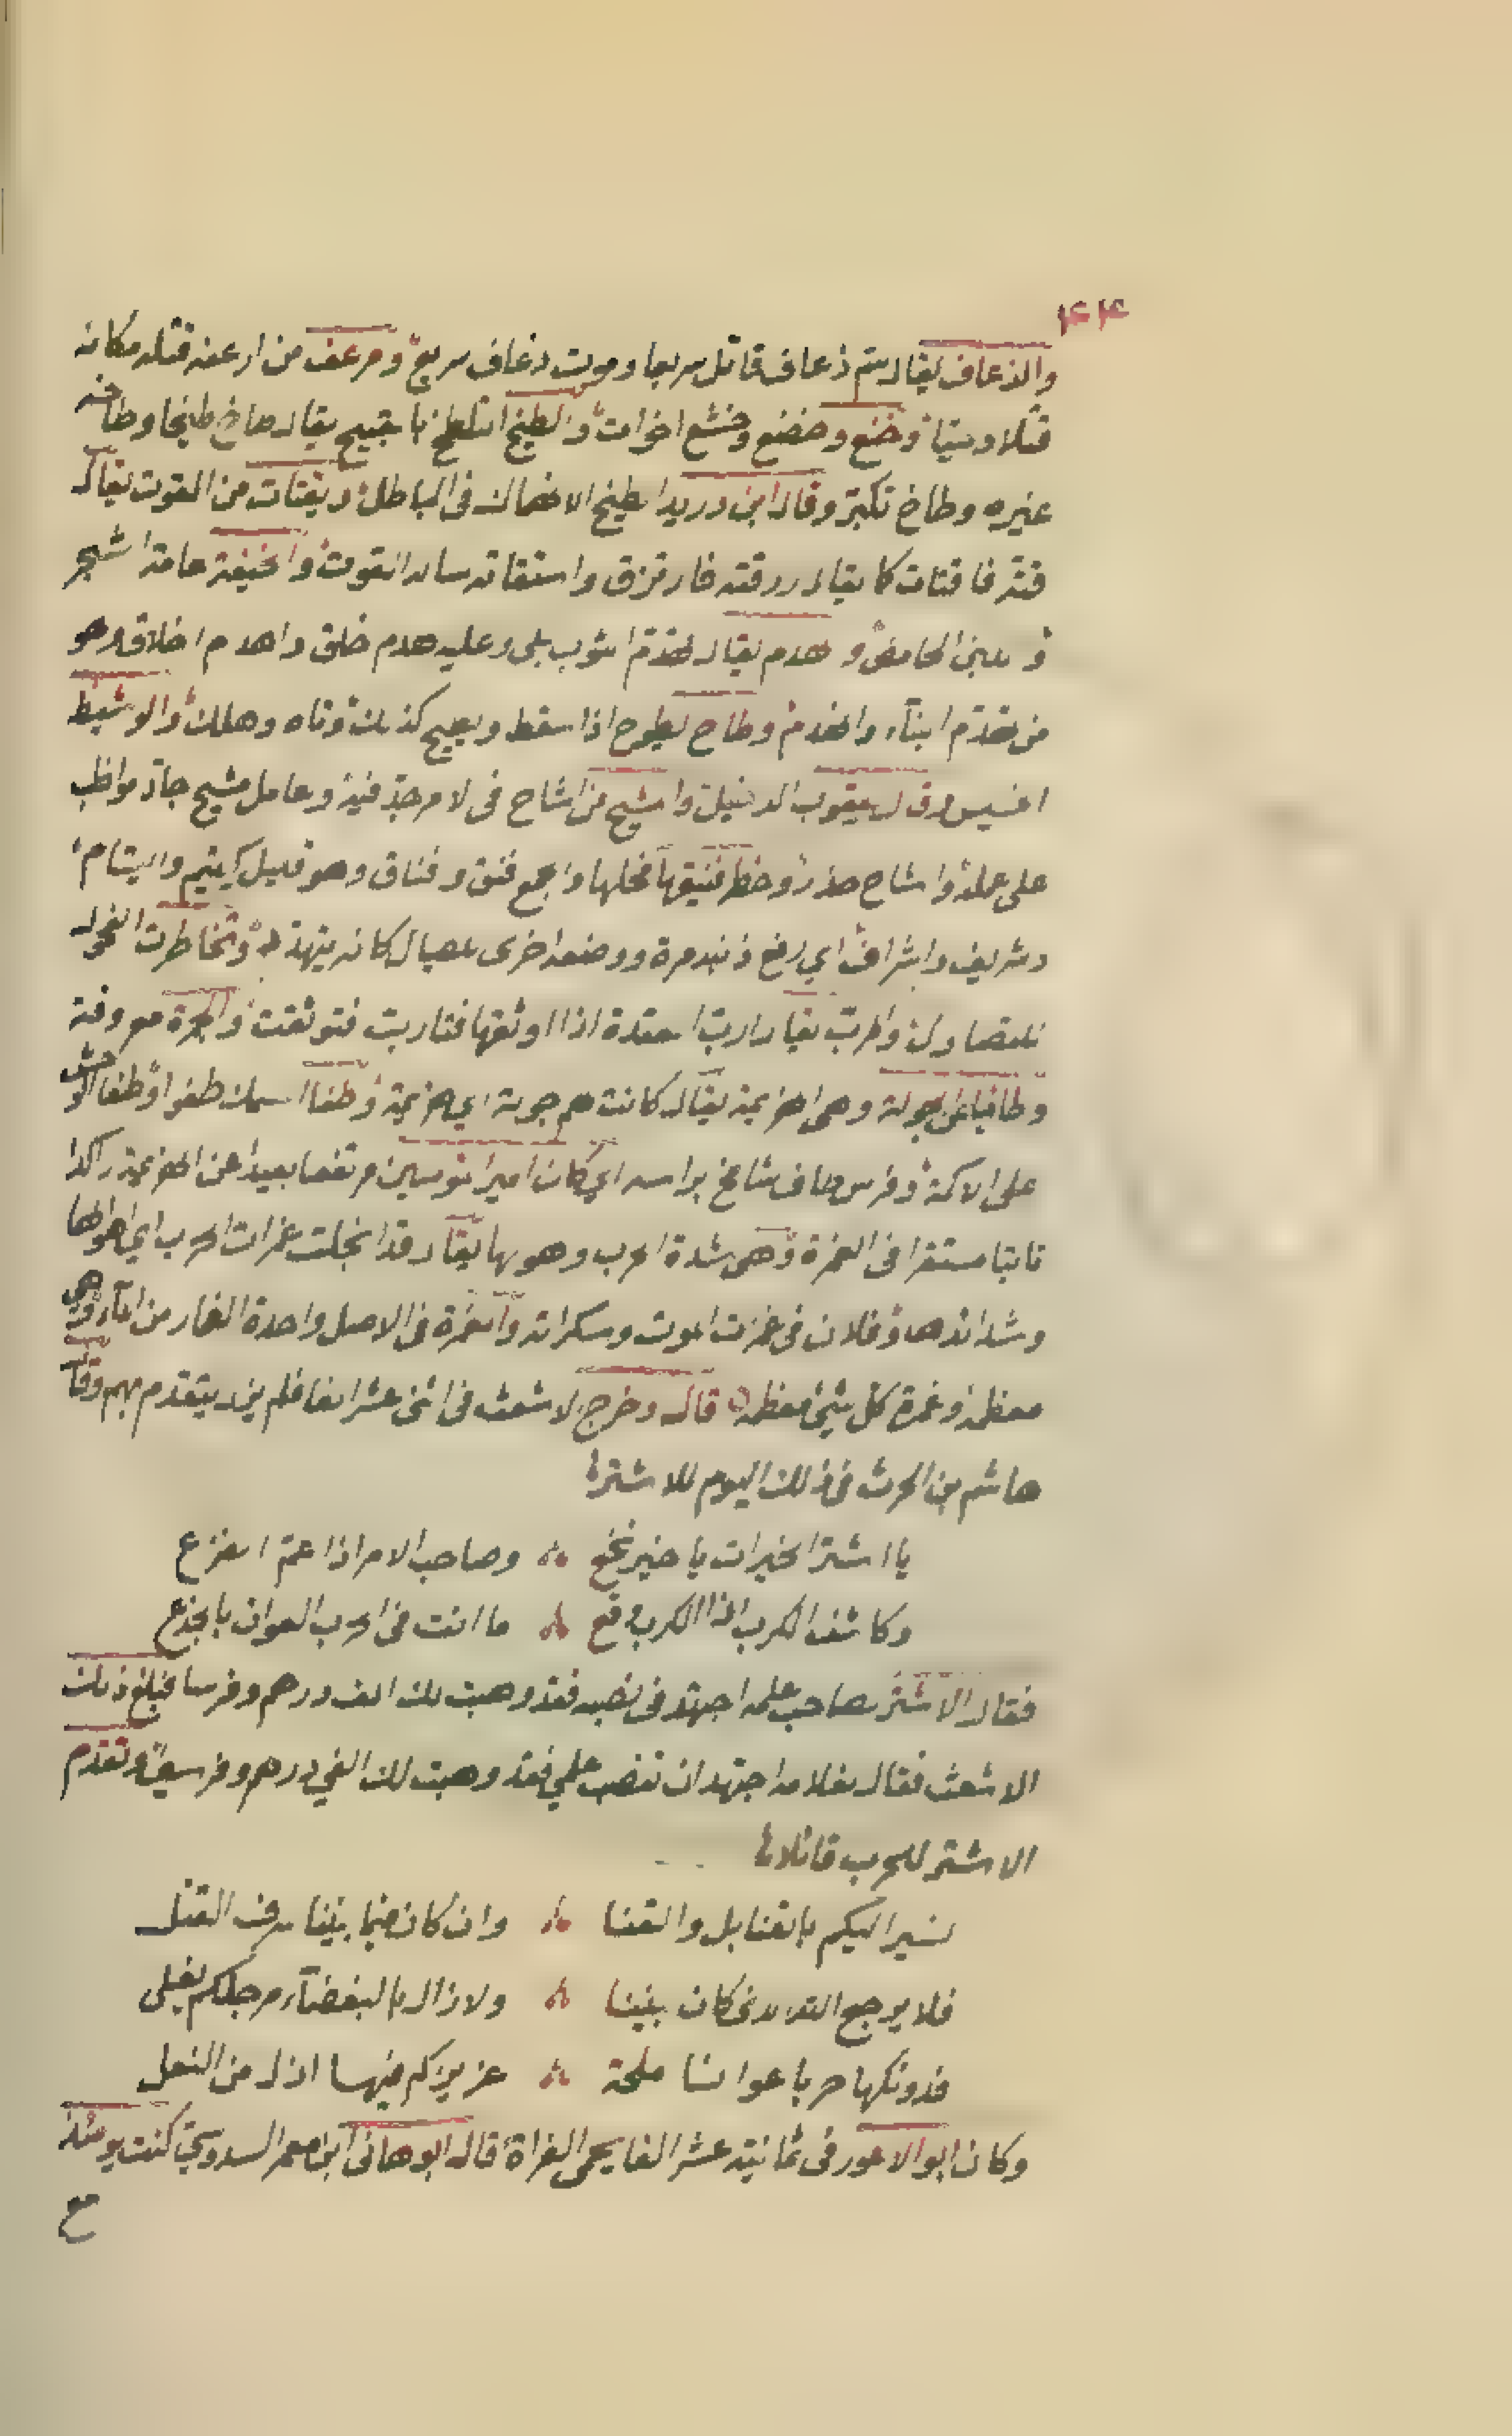 ٤٤
والذعاف يقال سم ذعاف قاتل سريعا وموت ذعاف سريع ومزعف من ازعفه قتله مكانه
قتلا وحيا وخنع وخضع وخشع اخوات والطيخ التلطخ بالقبيح يقال طاخ طيخا وطاخه
غيره وطاخ تكبر وقال ابن دريد الطيخ الانهماك فى الباطل ويقتات من القوت يقال
قته فاقتات كما يقال رزقته فارتزق واستقاته ساله القوت والخنيفة عامة الشجر
و اللبن الحامض وهدم يقال تهدم الثوب بلى وعليه هدم خلق واهدم اخلاق وهو
من تهدم البناء والهدم وطاح يطوح اذا سقط ويطيح كذلك وتاه وهلك والوشيظ
الخسيس وقال يعقوب الدخيل والمشيح من اشاح فى الامر جد فيه وعامل مشيح جاد مواظب
على عمله واشاح حذر وخطر فنيقها فحلها والجمع فنق وفناق وهو قليل كيتيم وايتام
وشريف واشراف اي رفع ذنبه مرة ووضعه اخرى للصيال كانه يتهدد وتخاطرت الفحول
للتصاول واربت يقال اربت العقدة اذا اوثقتها فتاربت فتوثقت والجرة معروفة
وطافيا على الجولة وهى الهزيمة يقال كانت لهم جولة اي هزيمة وطفا السمك طفوا وطفا الوحش
على الاكمة وفرس طاف شامخ براسه اي كان امير المومنين مرتفعا بعيدا عن الهزيمة راكدا
ثابتا مستقرا فى الغمرة وهى شدة الحرب وهولها يقال قد انجلت غمرات الحرب اي اهوالها
وشدائدها وفلان فى غمرت الموت وسكراته والغمرة فى الاصل واحدة الغمار من الماء وهي
معظمه وغمرة كل شيئ معظمه قال وخرج الاشعث فى اثنى عشر الفا فلم يزل يتقدم بهم وقال
هاشم بن الحرث فى ذلك اليوم للاشتر
يا اشتر الخيرات يا خير نخع وصاحب الامر اذا عم الفزع
وكاشف الكرب اذا الكرب وقع ما انت فى الحرب العوان بالجذع
فقال الاشتر لصاحب علمه اجهد فى نصبه فقد وهبت لك الف درهم وفرسا فبلغ ذلك
الاشعث فقال لغلامه اجتهد ان تنصب علمي فقد وهبت لك الفي درهم وفرسين وتقدم
الاشتر للحرب قائلا
نسير اليكم بالقنابل والقنا وان كان فيما بيننا سرف القتل
فلا يرجع الله الذى كان بيننا ولا زال بالبغضآء مرجلكم يغلى
فدونكها حربا عوانا ملحة عزيزكم فيها اذل من النعل
وكان ابو الاعور فى ثمانية عشر الفا يحمى الفراة قال ابو هانى ابن معمر السدوسي كنت يومئذ
مع